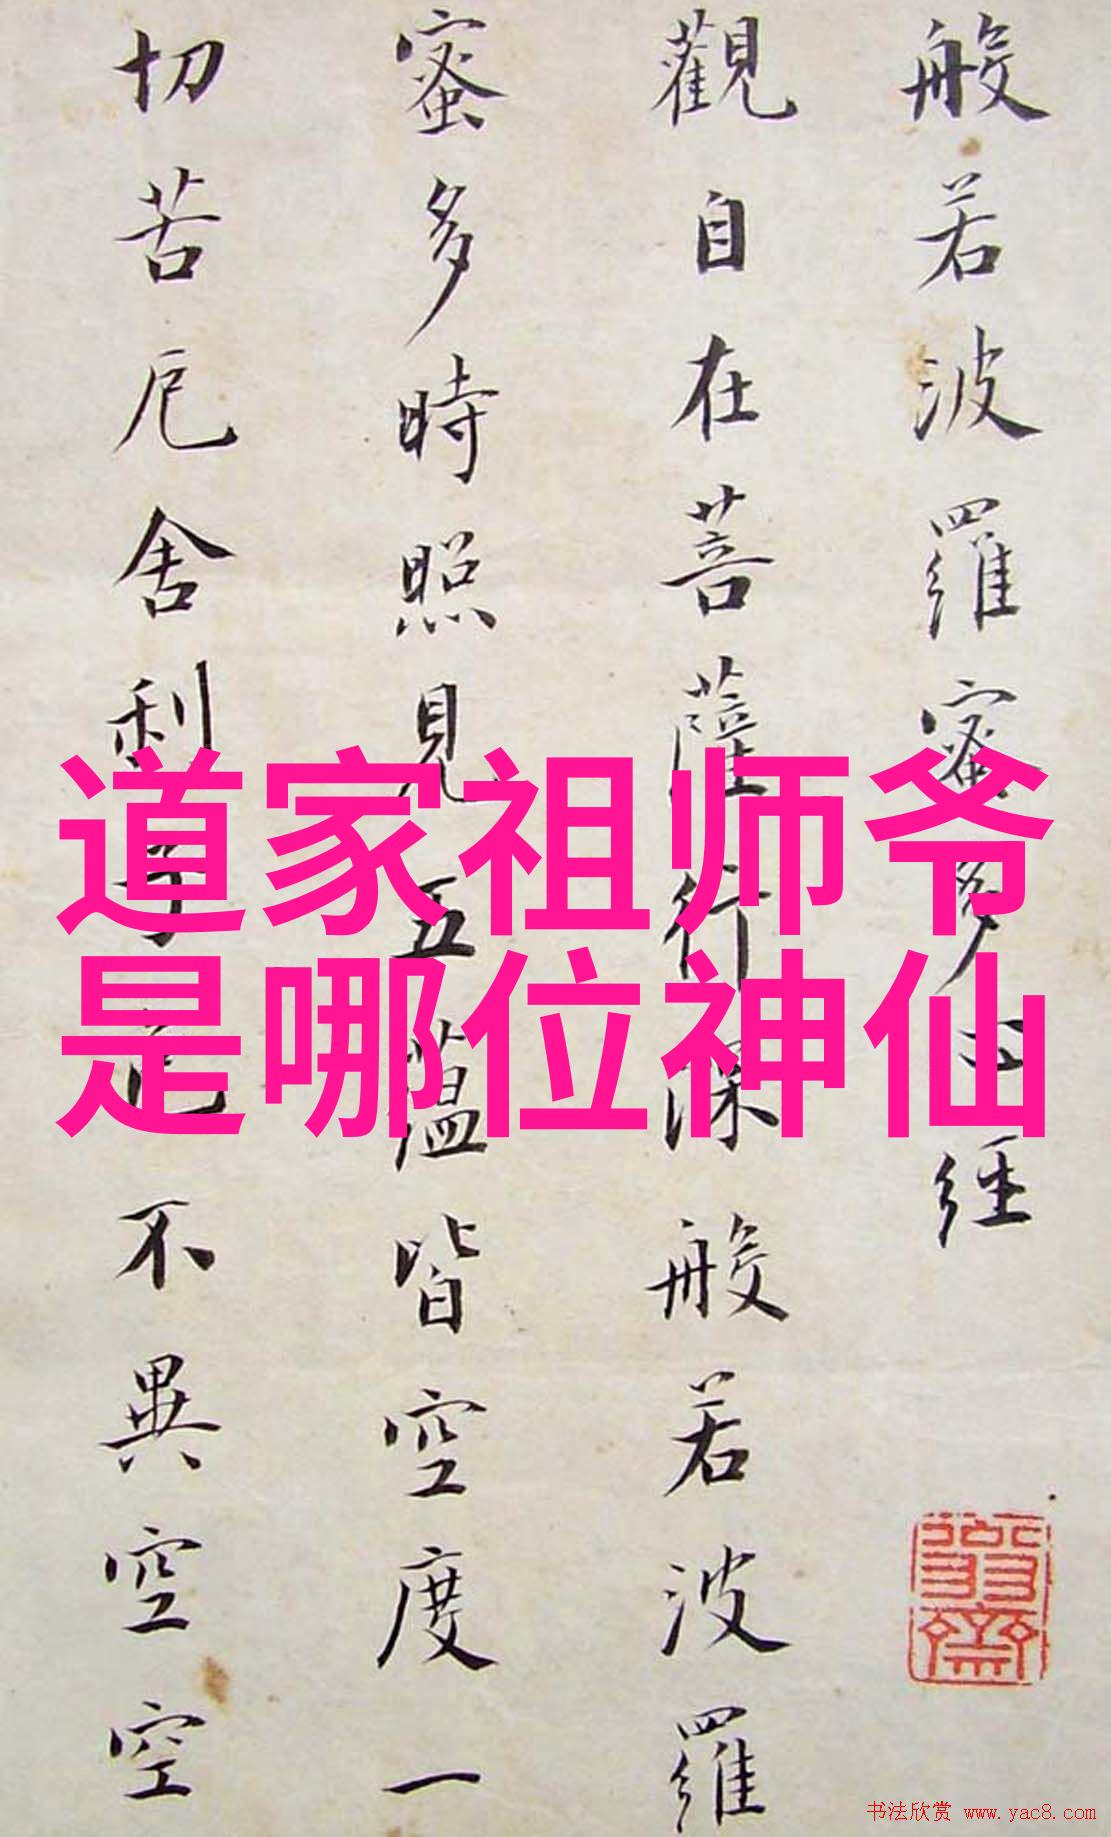 般若波羅蜜多心經
觀自在菩薩行深般若波羅
蜜多時照見五蘊皆空度一
切苦厄舍利子色不異空空
道家祖师爷
是哪位神仙
书法欣赏 www.yac8.com